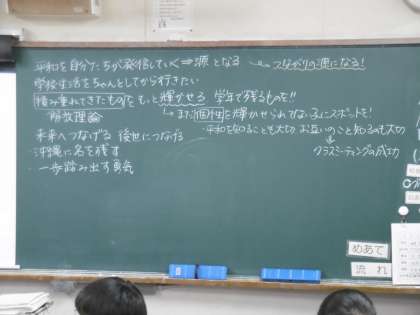 平和を自分たちが発信していく⇒源となる つながりの源になる!
学校生活をちゃんとしてから行きたい
積み重ねてきたものをもっと輝かせる 学年で残るものを!!
解放理論 まだ個性を輝かせられてない子にスポットを!
未来へつなげる 後世につなげる 平和を知ることも大切 お互いのこと知るのも大切
沖縄に名を残す クラスミーティングの成功
一歩踏み出す勇気
めあて
流れ